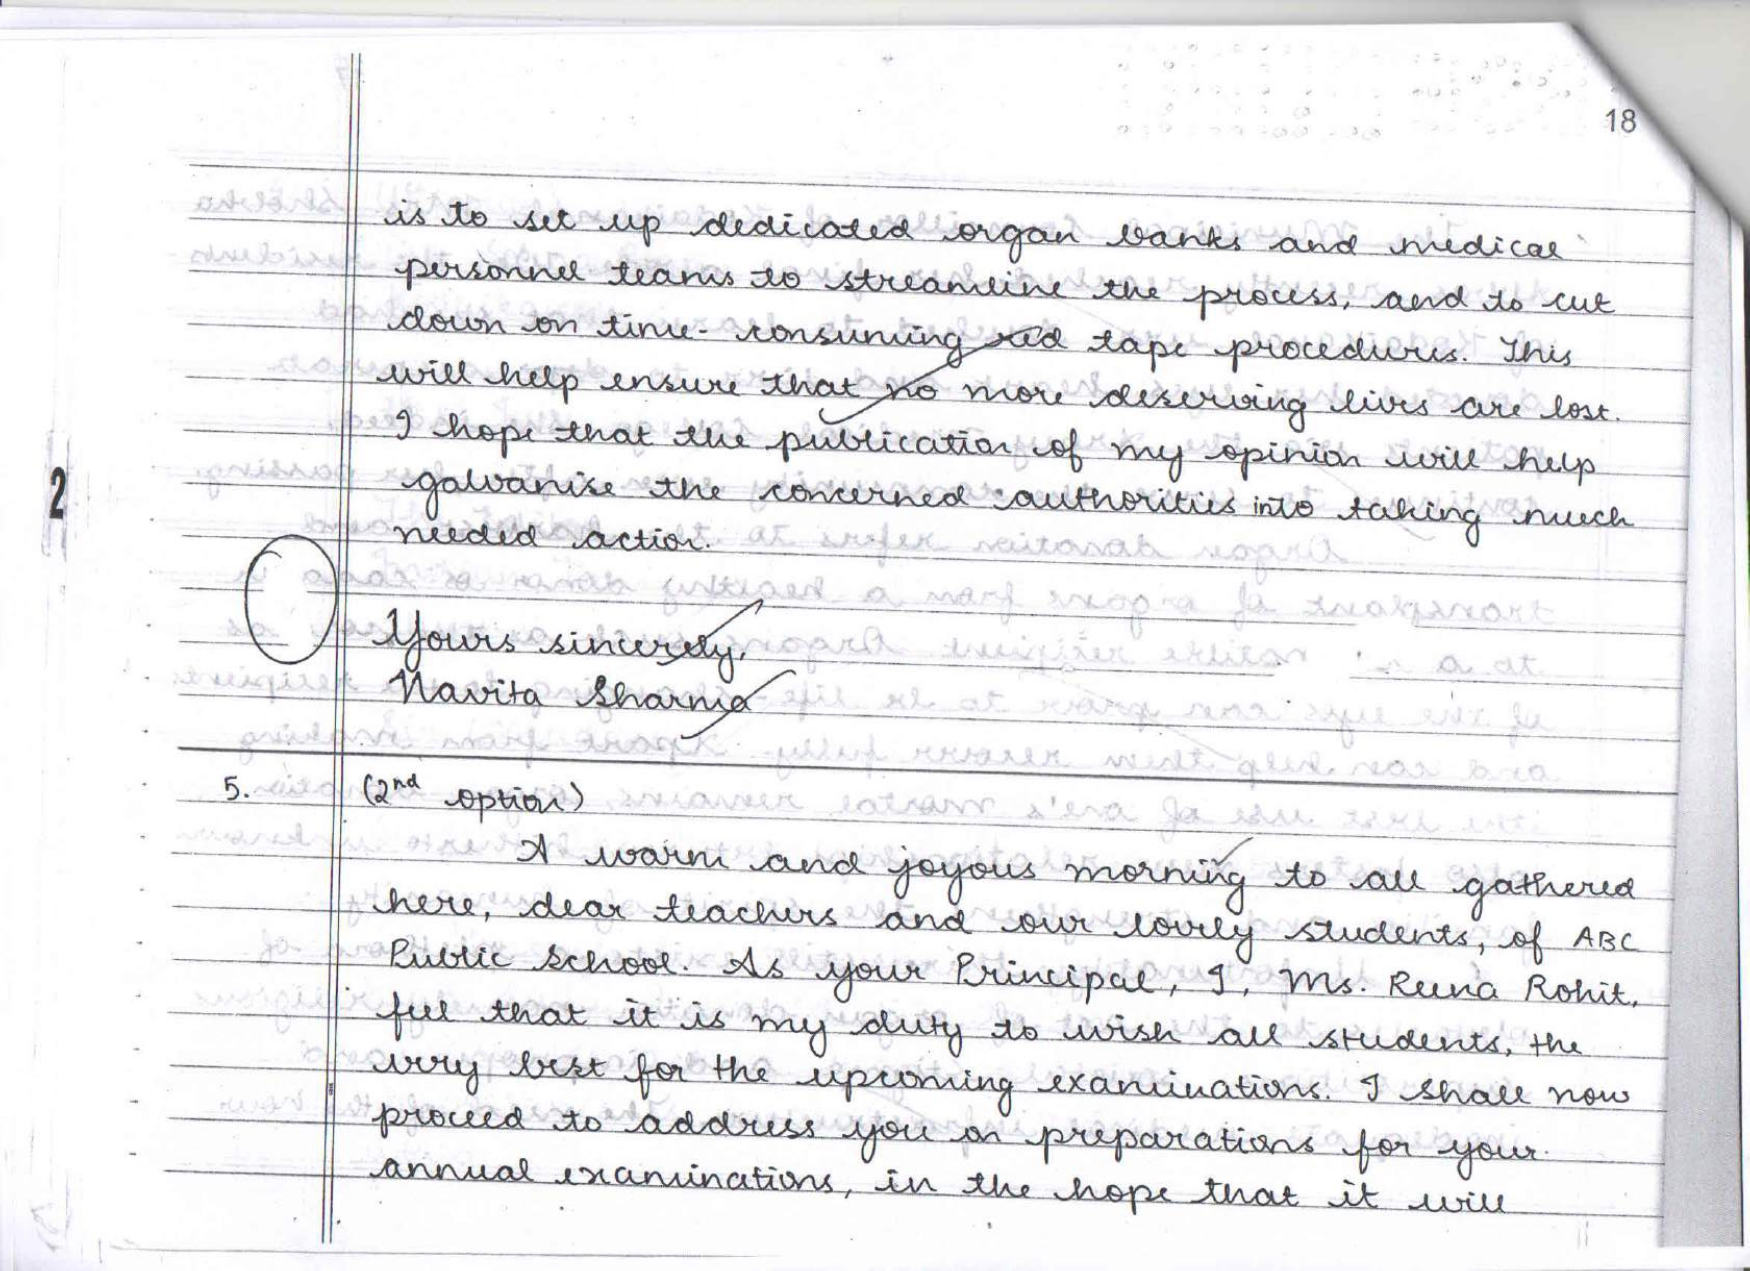 18
is to set up dedicated organ banks and medical
personnel teams to streamline the process, and to cut
down on time-consuming red tape procedures. This
will help ensure that no more deserving lives are lost.
I hope that the publication of my opinion will help
galvanise the concerned authorities into taking much
needed action.
2
Yours sincerely,
Navita Sharma
5. (2nd option)
A warm and joyous morning to all gathered
here, dear teachers and our lovely students, of ABC
Public School. As your Principal, I, Ms. Reena Rohit,
feel that it is my duty to wish all students, the
very best for the upcoming examinations. I shall now
proceed to address you on preparations for your
annual examinations, in the hope that it will